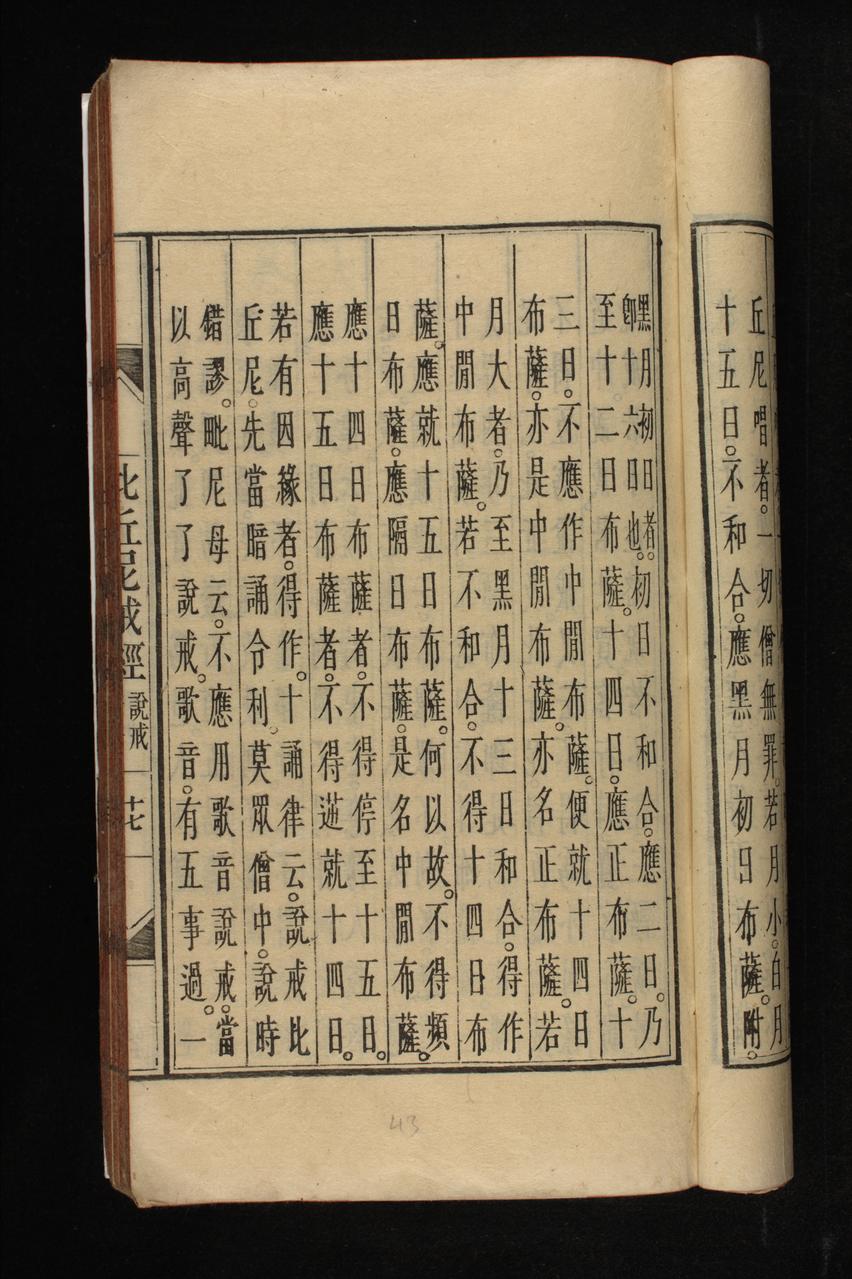 丘尼唱者。一切僧無罪。若月小。白月
十五日。不和合。應黑月初日布薩。附
黑月初日者。
卽十六日也。
初日不和合。應二日。乃
至十二日布薩。十四日。應正布薩。十
三日。不應作中閒布薩。便就十四日
布薩。亦是中閒布薩。亦名正布薩。若
月大者。乃至黑月十三日和合。得作
中閒布薩。若不和合。不得十四日布
薩。應就十五日布薩。何以故。不得頻
日布薩。應隔日布薩。是名中閒布薩。
應十四日布薩者。不得停至十五日。
應十五日布薩者。不得逆就十四日。
若有因緣者。得作。十誦律云。說戒比
丘尼。先當暗誦令利。莫眾僧中。說時
錯謬。毗尼母云。不應用歌音說戒。當
以高聲了了說戒。歌音。有五事過。一
比丘尼戒經 說戒 十七
43